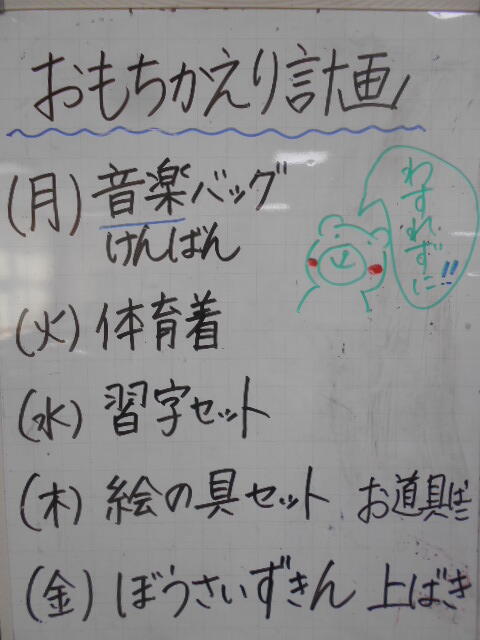 おもちかえり計画
(月) 音楽バッグ
けんばん
わすれずに!!
(火) 体育着
(水) 習字セット
(木) 絵の具セット お道具ばこ
(金) ぼうさいずきん 上ばき